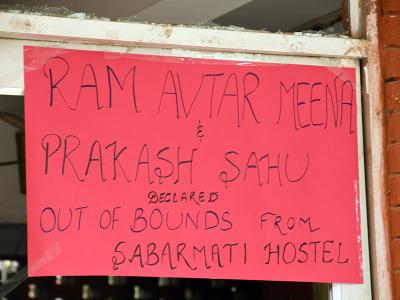 RAM AVTAR MEENA
&
PRAKASH SAHU
DECLARED
OUT OF BOUNDS FROM
SABARMATI HOSTEL